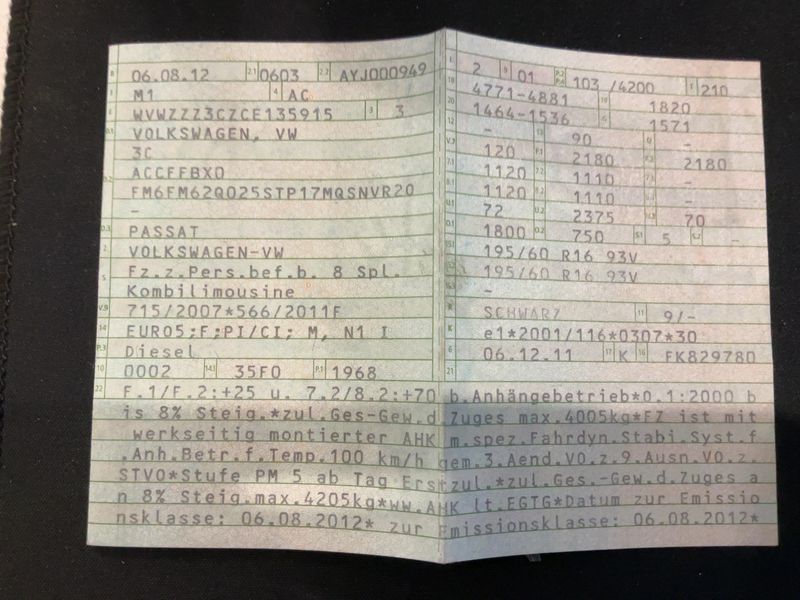 B 06.08.12 2.1 0603 2.2 AYJ000949
J M1 4 AC
E WVWZZZ3CZCE135915 3 3
D.1 VOLKSWAGEN, VW
3C
D.2 ACCFFBX0
FM6FM62Q025STP17MQSNVR20
-
D.3 PASSAT
2 VOLKSWAGEN-VW
5 Fz.z.Pers.bef.b. 8 Spl.
Kombilimousine
V.9 715/2007*566/2011F
14 EURO5;F;PI/CI; M, N1 I
P.3 Diesel
10 0002 14.1 35F0 P.1 1968
L 2 9 01 P.2 P.4 103 /4200 T 210
18 4771-4881 19 1820
20 1464-1536 G 1571
- 13 90 Q -
V.7 120 F.1 2180 F.2 2180
7.1 1120 7.2 1110 7.3 -
8.1 1120 8.2 1110 8.3 -
U.1 72 U.2 2375 U.3 70
O.1 1800 O.2 750 S.1 5 S.2 -
15.1 195/60 R16 93V
15.2 195/60 R16 93V
-
R SCHWARZ 11 9/-
K e1*2001/116*0307*30
6 06.12.11 17 K 16 FK829780
21
22 F.1/F.2:+25 u. 7.2/8.2:+70 b.Anhängebetrieb*O.1:2000 b
is 8% Steig.*zul.Ges-Gew.d.Zuges max.4005kg*FZ ist mit
werkseitig montierter AHK m.spez.Fahrdyn.Stabi.Syst.f
.Anh.Betr.f.Temp.100 km/h gem.3.Aend.VO.z.9.Ausn.VO.z.
STVO*Stufe PM 5 ab Tag Erstzul.*zul.Ges.-Gew.d.Zuges a
n 8% Steig.max.4205kg*ww.AHK lt.EGTG*Datum zur Emissio
nsklasse: 06.08.2012* zur Emissionsklasse: 06.08.2012*